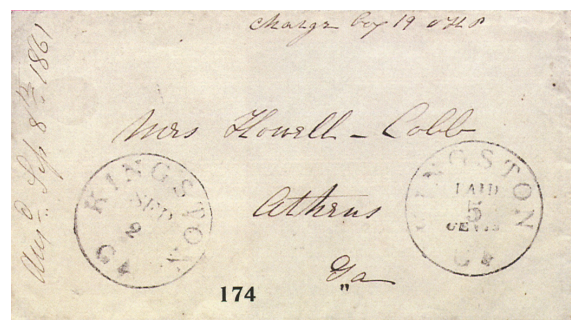 Charge Box 19
Augt Sep 8th 1861
Mrs Howell - Cobb
Athens
Ga
KINGSTON
SEP
2
GA
KINGSTON
PAID
5
CENTS
GA
174